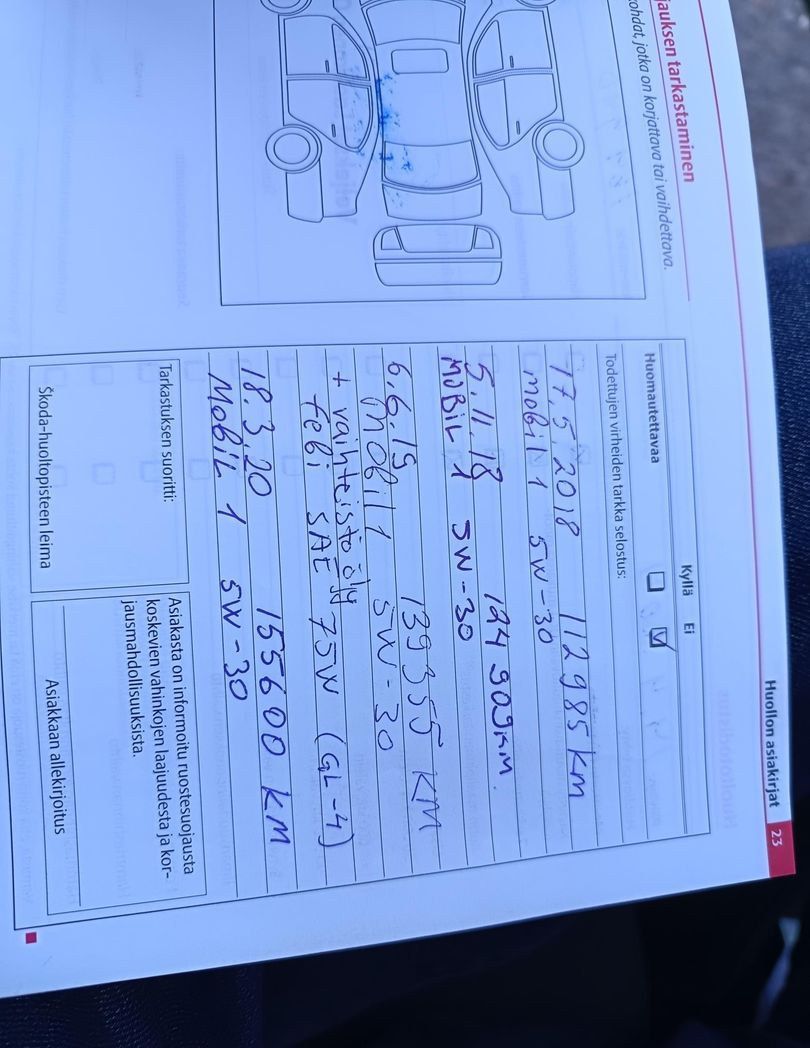 Huollon asiakirjat 23
jauksen tarkastaminen
kohdat, jotka on korjattava tai vaihdettava.
Kyllä Ei
Huomautettavaa
Todettujen virheiden tarkka selostus:
17.5.2018 112985 km
mobil 1 5W-30
5.11.18 124 909 km.
MOBIL 1 5W-30
6.6.19 139355 KM
mobil 1 5W-30
+ vaihteisto öljy
febi SAE 75W (GL-4)
18.3.20 155600 KM
MobiL 1 5W-30
Tarkastuksen suoritti:
Škoda-huoltopisteen leima
Asiakasta on informoitu ruostesuojausta
koskevien vahinkojen laajuudesta ja kor-
jausmahdollisuuksista.
Asiakkaan allekirjoitus